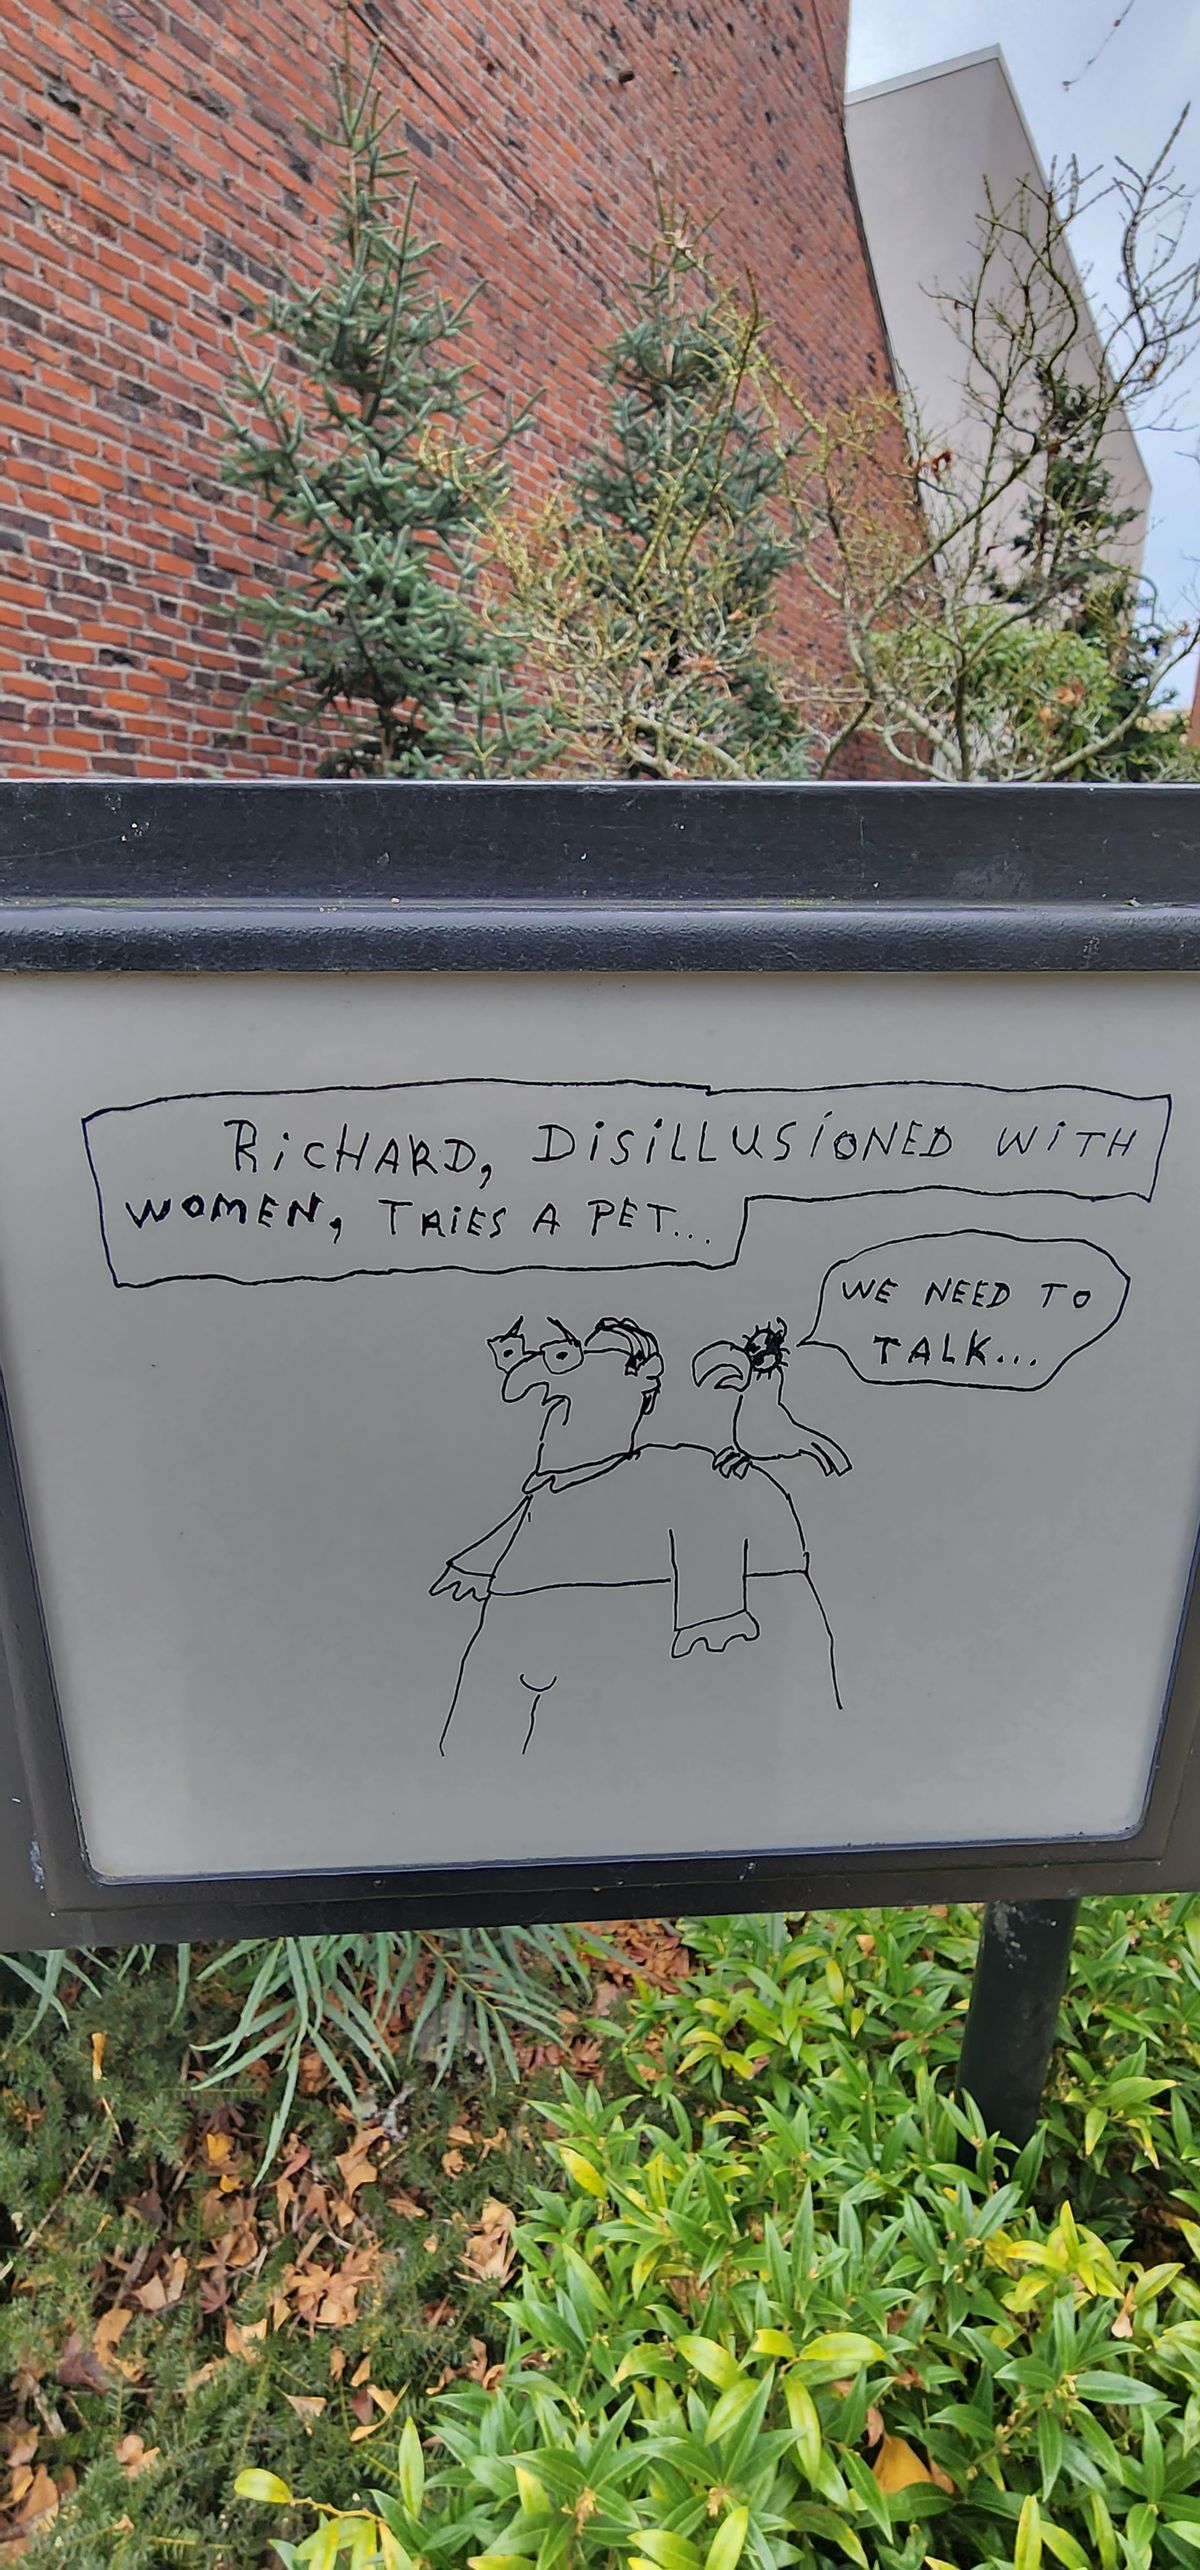 RiCHARD, DiSiLLUSiONED WiTH
WOMEN, TRiES A PET...
WE NEED TO
TALK...